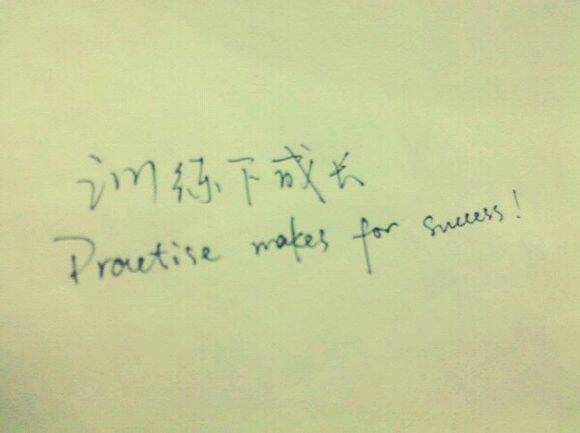 训练下成长
Practise makes for success!